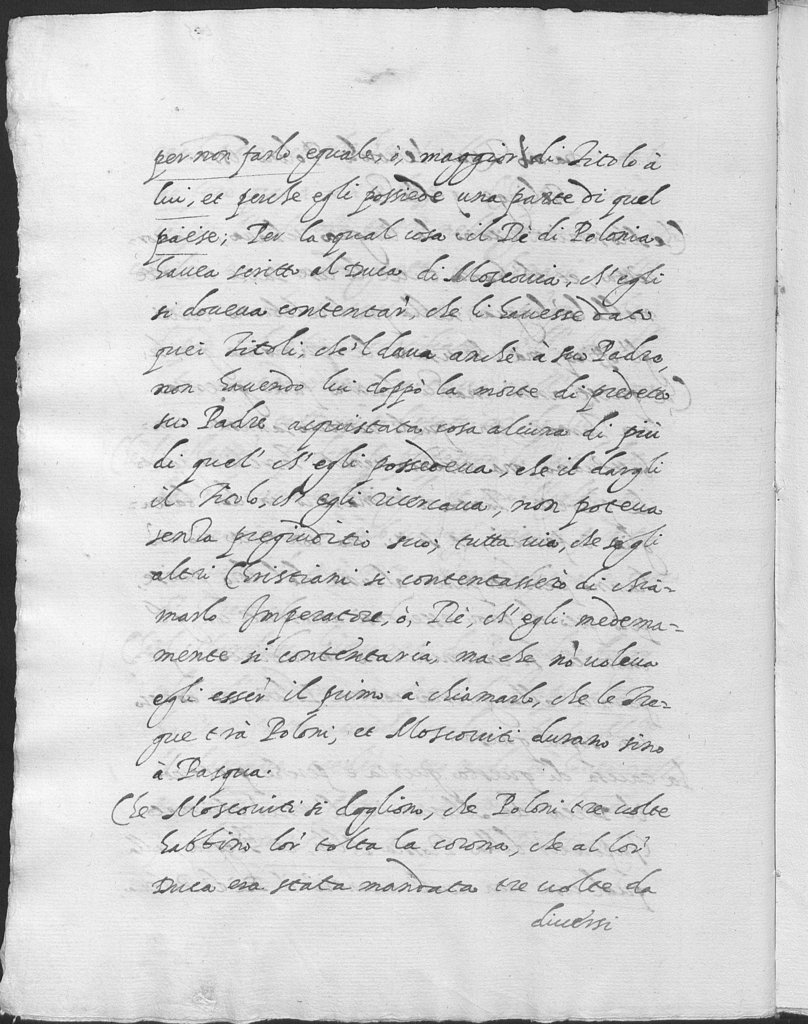 per non farlo eguale, ò, maggior di Titolo à
lui, et perche egli possiede una parte di quel
paese; Per la qual cosa il Rè di Polonia
haueua scritto al Duca di Moscouia, ch'egli
si doueua contentar, che li hauesse dato
quei Titoli, che'l daua anche à suo Padre,
non hauendo lui doppò la morte di predetto
suo Padre acquistata cosa alcuna di più
di quel ch'egli possedeua, che il dargli
il Titolo, ch'egli ricercaua, non poteua
senza pregiuditio suo; tutta uia, che se gli
altri Christiani si contentassero di chia-
marlo Imperatore, ò, Rè, ch'egli medema-
mente si contentaria, ma che nõ uoleua
egli esser il primo à chiamarlo, che le Tre-
gue trà Poloni, et Moscouiti durano sino
à Pasqua.
Che Moscouiti si dogliono, che Poloni tre uolte
habbino lor tolta la corona, che al lor
Duca era stata mandata tre uolte da
diuersi